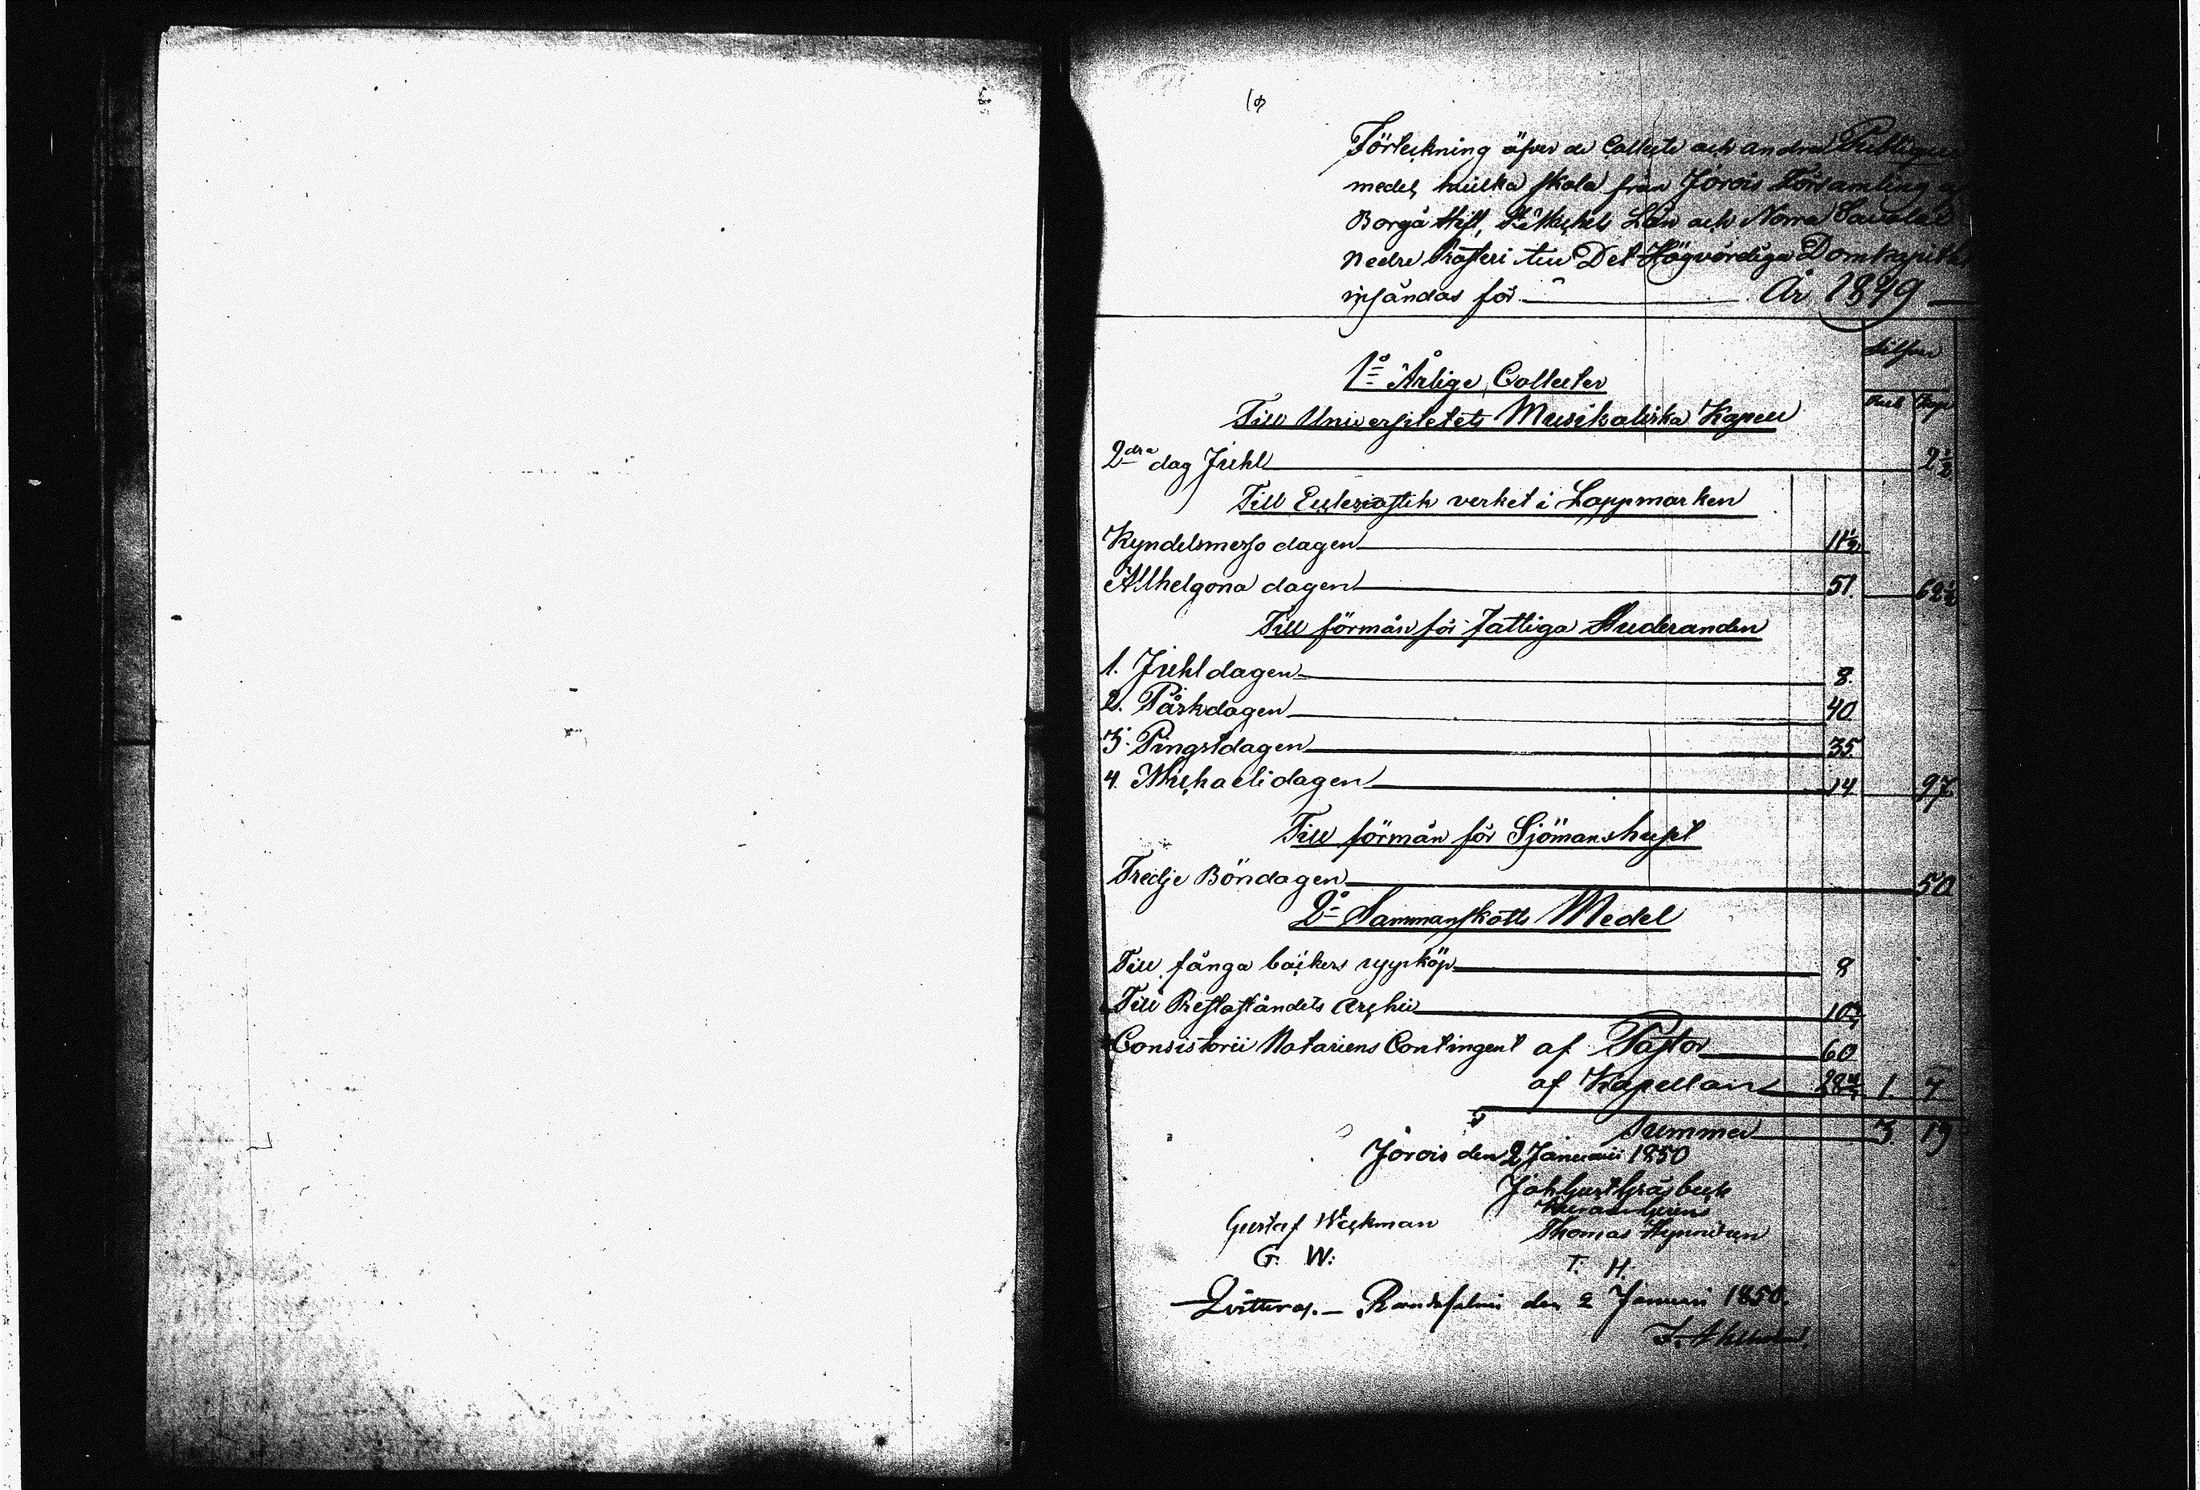 Förteckning öfver de Collecte och andra Publique
medel, hvilka skola från Jorois Församling af
Borgå Stift, St Michels Län och Norra Savolax
Nedre Prosteri till Det Högvördiga Domkapitlet
insändas för År 1849
Silfver
Rub Kop
1o Årlige Collecter
Till Universitetets Musikaliska Kapell
2dra dag Juhl 2 1/2
Till Ecclesiastik verket i Lappmarken
Kyndelsmesso dagen 11 1/2
Allhelgona dagen 51. 62 1/2
Till förmån för fattiga Studeranden
1. Juhldagen 8.
2. Påskdagen 40
3. Pingstdagen 35.
4. Michaelidagen 14 97
Till förmån för Sjömanshuset
Tredje Böndagen 50
2o Sammanskotts Medel
Till fånga böckers uppköp 8
Till Presteståndets Archiv 10
Consistorii Notariens Contingent af Pastor 60
af Kapellan 28 4/7 1. 7
Summa 3. 19
Jorois den 2 Januarii 1850
Joh Gust Gråsbeck
Thomas Hynninen
Gustaf Weckman
G. W: T. H.
Qvitteras. — Randasalmi den 2 Januari 1850.